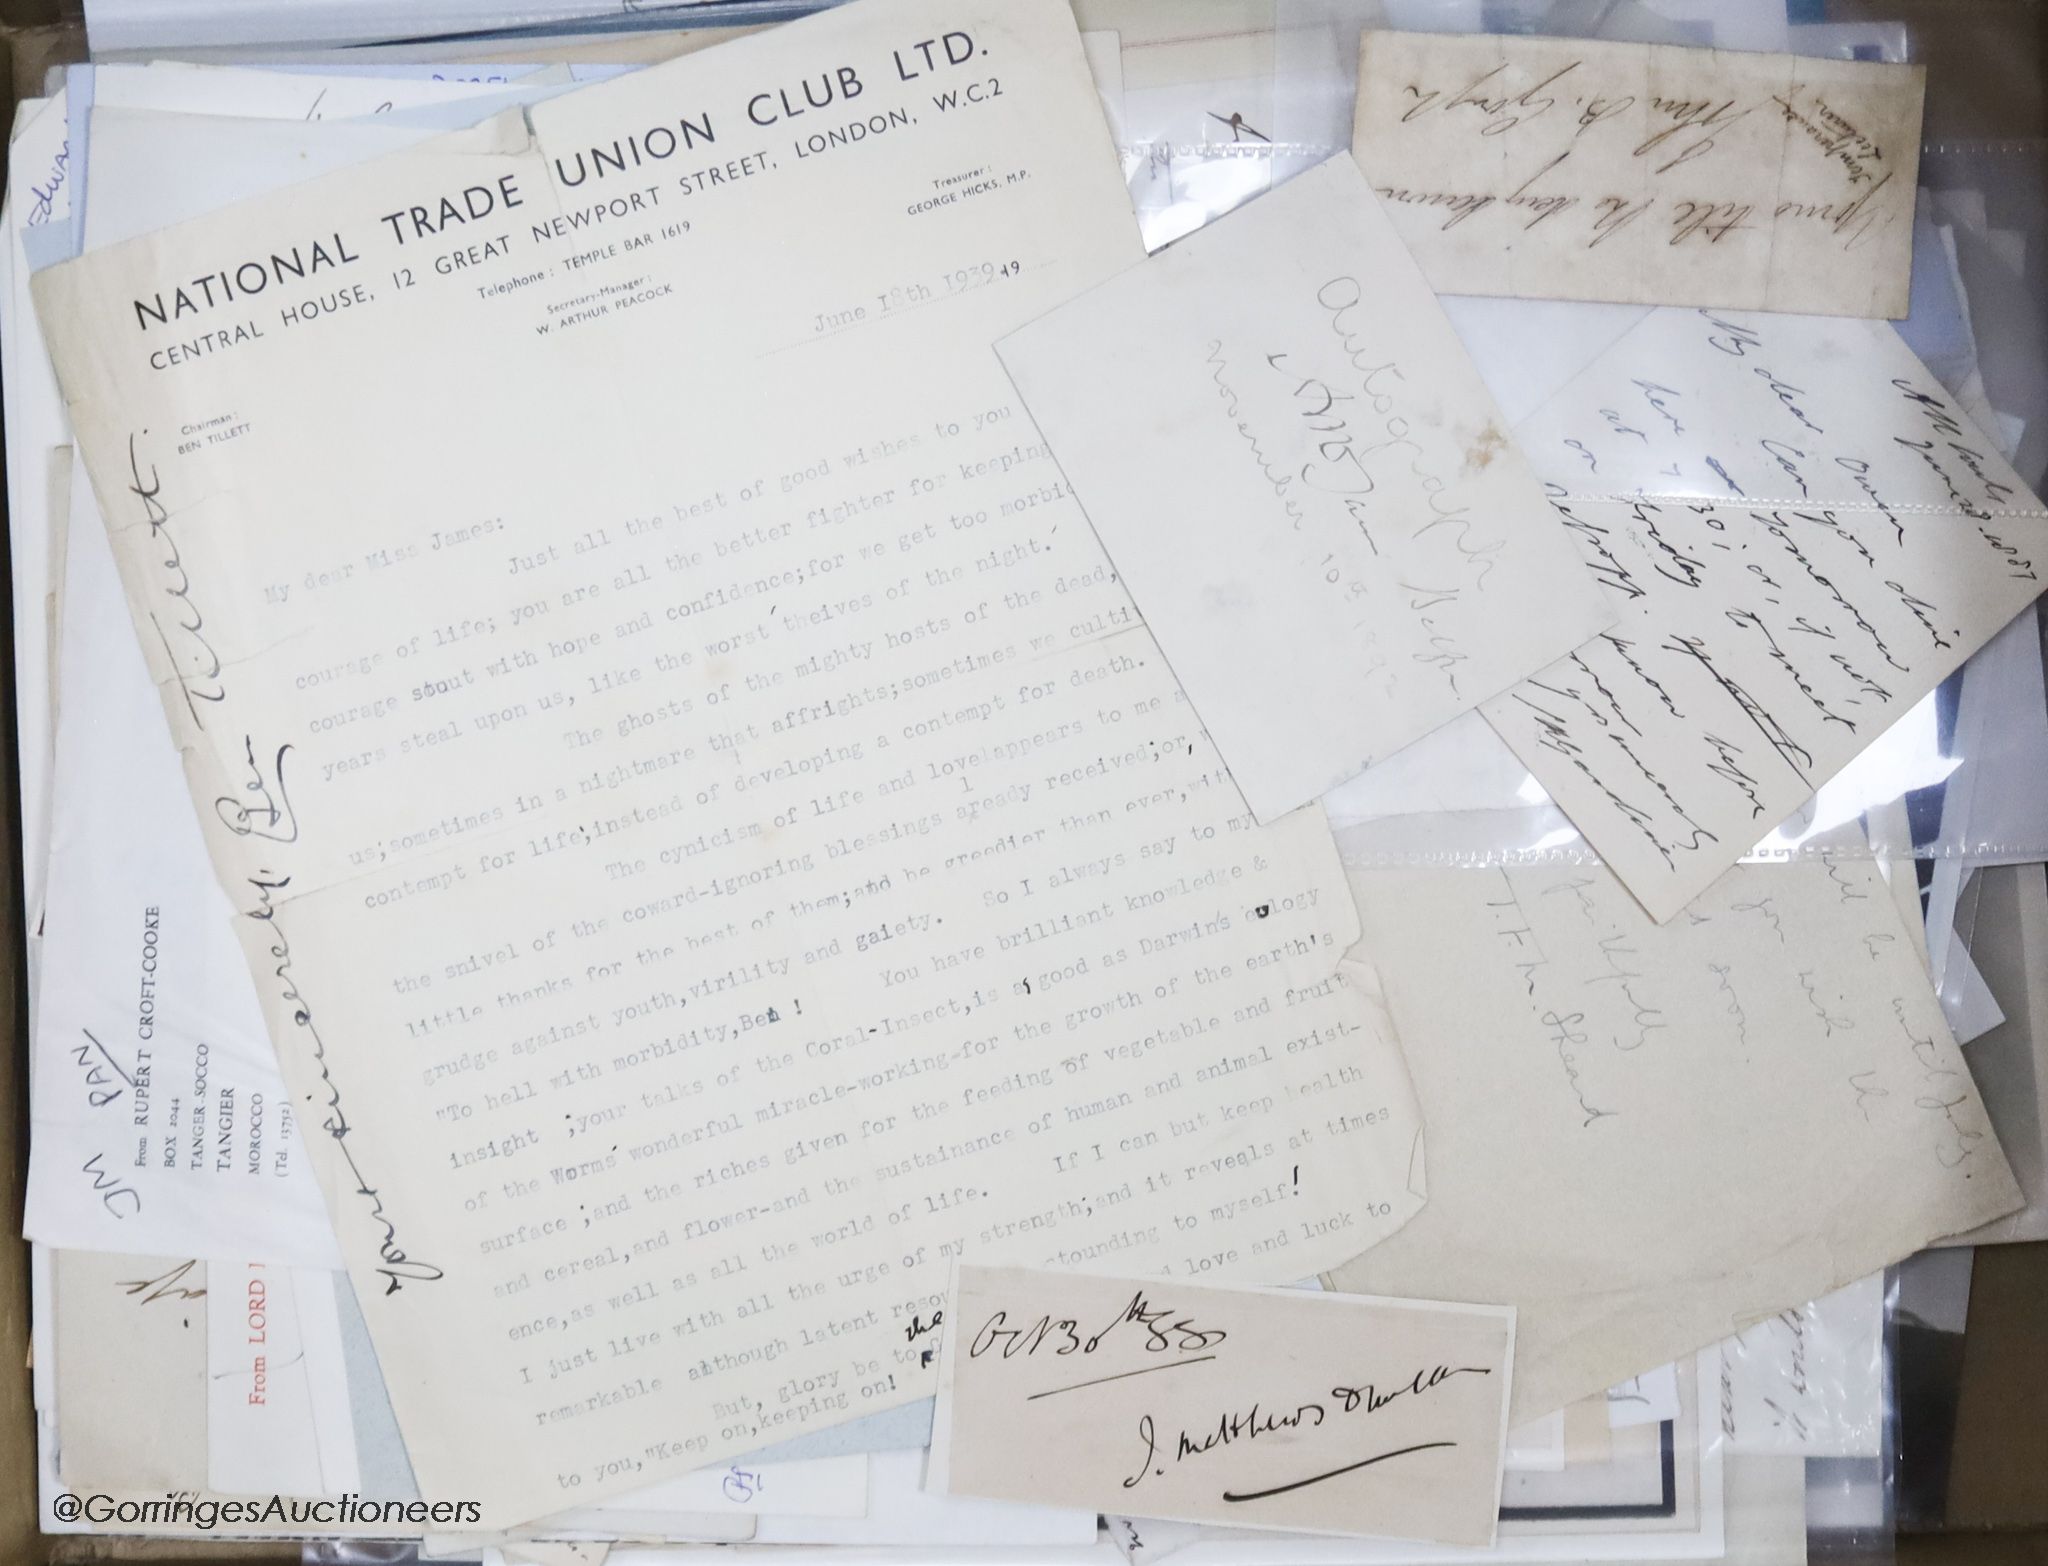 NATIONAL TRADE UNION CLUB LTD.
CENTRAL HOUSE, 12 GREAT NEWPORT STREET, LONDON, W.C.2
Telephone: TEMPLE BAR 1619
Secretary-Manager:
W. ARTHUR PEACOCK
Treasurer:
GEORGE HICKS, M.P.
June 18th 1939 19
Chairman:
BEN TILLETT
My dear Miss James:
Just all the best of good wishes to you
courage of life; you are all the better fighter for keeping
courage stout with hope and confidence;for we get too morbid
years steal upon us, like the worst theives of the night.
The ghosts of the mighty hosts of the dead,
us;sometimes in a nightmare that affrights;sometimes we culti
contempt for life;instead of developing a contempt for death.
The cynicism of life and love appears to me a
the snivel of the coward-ignoring blessings already received;or,
little thanks for the best of them;and be greedier than ever,with
grudge against youth,virility and gaiety. So I always say to my
"To hell with morbidity,Ben !
You have brilliant knowledge &
insight ;your talks of the Coral-Insect,is as good as Darwin's eulogy
of the Worms' wonderful miracle-working-for the growth of the earth's
surface ;and the riches given for the feeding of vegetable and fruit
and cereal,and flower-and the sustainance of human and animal exist-
ence,as well as all the world of life. If I can but keep health
I just live with all the urge of my strength;and it reveals at times
remarkable although latent resou
stounding to myself!
But, glory be to the
love and luck to
to you,"Keep on,keeping on!
Yours sincerely. Ben Tillett.
Autograph
Help.
November 10th 1892
yours till the day dawn
John B. Gough
Temperance
Lecturer
June 20. 1887
My dear Owen
Can you dine
here tomorrow
at 7.30, or, if not,
on Friday to meet
know before
now
yrs sincerely
will be until July.
you wish the
soon.
faithfully
T. F. M. Sheard
Oct 30th 88
J. Matthews Duncan
JM PAN
From RUPERT CROFT-COOKE
BOX 2044
TANGER SOCCO
TANGIER
MOROCCO
(Tel. 13752)
From LORD
@GorringesAuctioneers